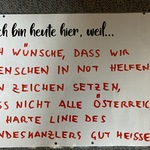 ch bin heute hier, weil...
CH WÜNSCHE, DASS WIR
ENSCHEN IN NOT HELFEN
N ZEICHEN SETZEN,
SS NICHT ALLE ÖSTERREIC
HARTE LINIE DES
NDESHANZLERS GUT HEISSE